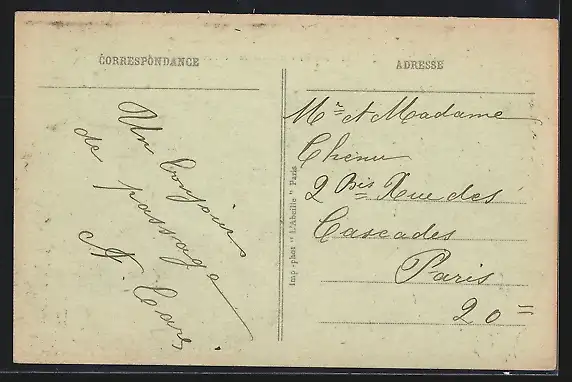 CORRESPONDANCE
Un bonjour
de passage
ADRESSE
Mr et Madame
Chenu
2 Bis Rue des
Cascades
Paris
20=
imp-phot "L'Abeille" Paris